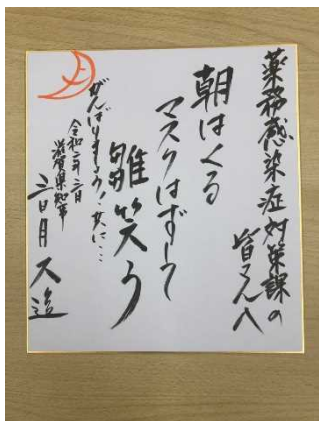 薬務感染症対策課の
皆さんへ
朝はくる
マスクはずして
雛笑う
がんばりましょう!共に…
令和三年三月
滋賀県知事
三日月大造